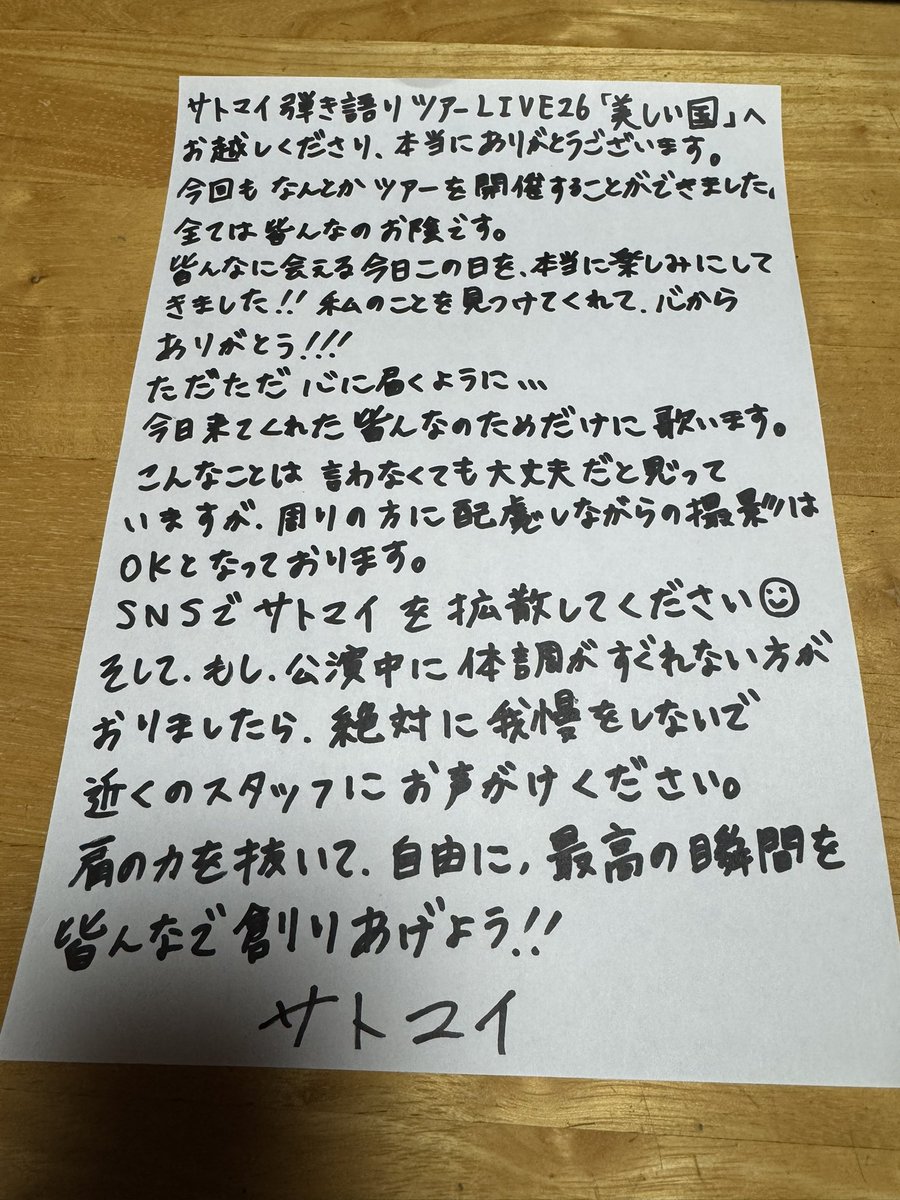 サトマイ弾き語りツアーLIVE26「美しい国」へ
お越しくださり、本当にありがとうございます。
今回も なんとか ツアーを開催することができました、
全ては皆んなのお陰です。
皆んなに会える今日この日を、本当に楽しみにして
きました!! 私のことを見つけてくれて、心から
ありがとう!!!
ただただ 心に届くように...
今日来てくれた皆んなのためだけに 歌います。
こんなことは 言わなくても大丈夫だと思って
いますが、周りの方に配慮しながらの撮影は
OKとなっております。
SNSで サトマイ を 拡散してください☺
そして、もし、公演中に 体調が すぐれない方が
おりましたら、絶対に 我慢をしないで
近くのスタッフに お声がけください。
肩の力を抜いて、自由に、最高の瞬間を
皆んなで創りあげよう!!
サトマイ